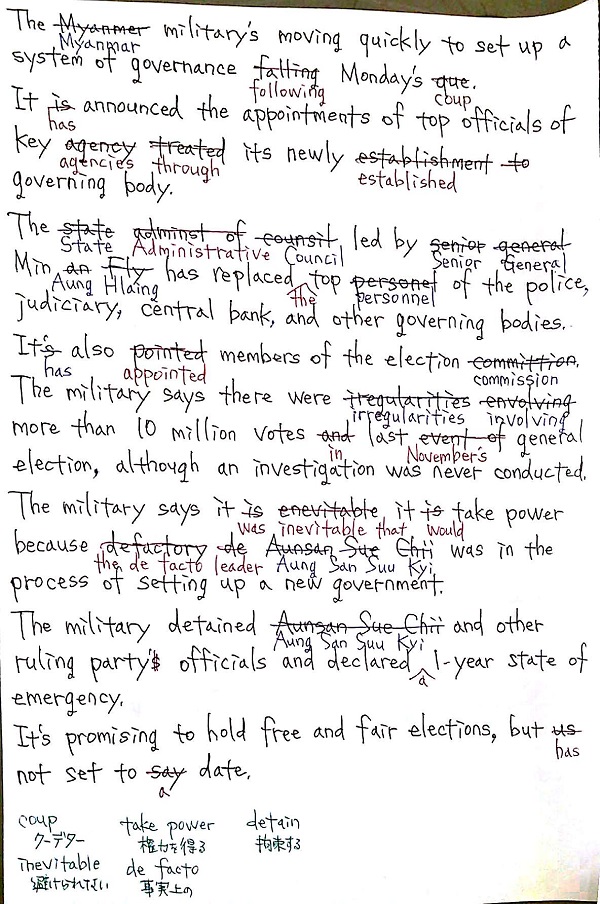 The Myanmer military's moving quickly to set up a
Myanmar
system of governance falling Monday's que.
following coup
It is announced the appointments of top officials of
has
key agency treated its newly establishment to
agencies through established
governing body.
The state adminst of counsil led by senior general
State Administrative Council Senior General
Min an Fly has replaced top personel of the police,
Aung Hlaing the personnel
judiciary, central bank, and other governing bodies.
It's also pointed members of the election committion.
has appointed commission
The military says there were iregularities envolving
irregularities involving
more than 10 million votes and last event of general
in November's
election, although an investigation was never conducted.
The military says it is enevitable it is take power
was inevitable that would
because defactory de Aunsan Sue Chii was in the
the de facto leader Aung San Suu Kyi
process of setting up a new government.
The military detained Aunsan Sue Chii and other
Aung San Suu Kyi
ruling party's officials and declared 1-year state of
a
emergency.
It's promising to hold free and fair elections, but us
has
not set to say date.
a
coup take power detain
クーデター 権力を得る 拘束する
inevitable de facto
避けられない 事実上の